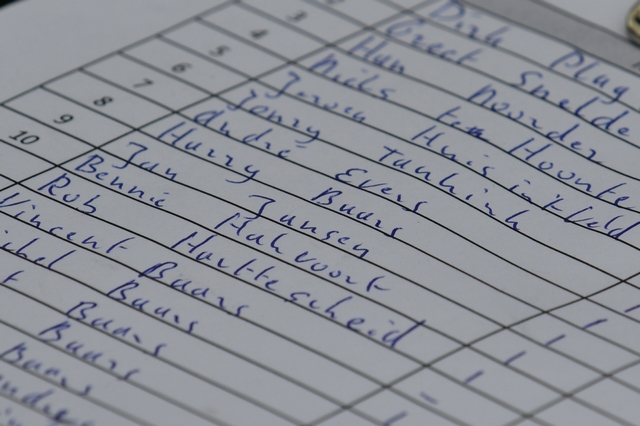 Dirk Plug
Greet Smelde
3 Han Noorder
4 Niels ten Hoonte
5 Jeroen Huisintveld
6 Jonny Tankink
7 André Evers
8 Harry Baars
9 Jan Jansen
10 Bennie Halvoort
Rob Harttescheid
Vincent Baars
ichel Baars
Baars
Baars
Baars